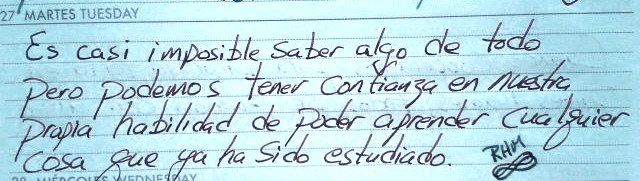 27 MARTES TUESDAY
Es casi imposible saber algo de todo
pero podemos tener confianza en nuestra
propia habilidad de poder aprender cualquier
cosa que ya ha sido estudiado.
RHM
28 MIÉRCOLES WEDNESDAY